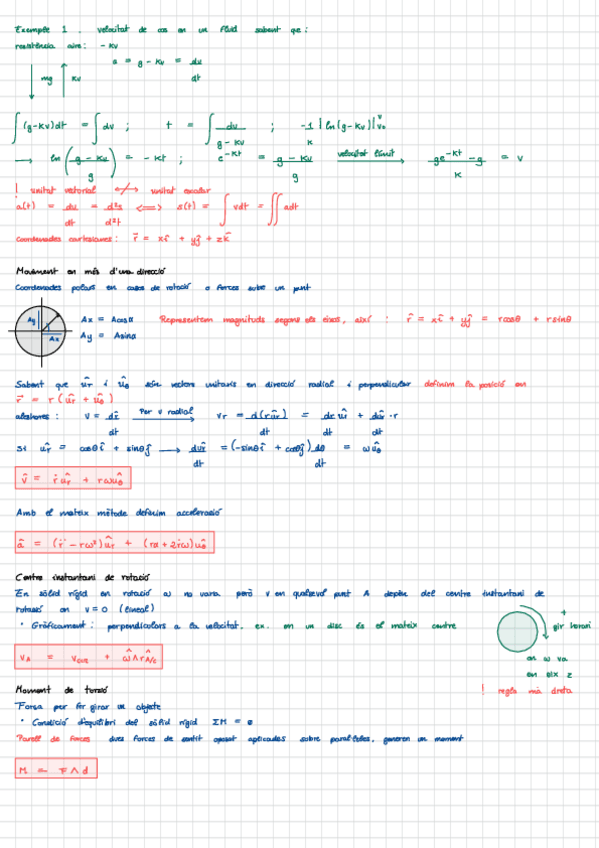 Exemple 1. velocitat de cos en un fluid sabent que:
resistència aire: -kv
mg kv a = g - kv = dv/dt
∫(g-kv)dt = ∫dv ; t = ∫ dv/(g-kv) ; -1/k |ln(g-kv)|ᵛᵥ₀
→ ln((g-kv)/g) = -kt ; e^-kt = (g-kv)/g velocitat límit → (ge^-kt - g)/k = v
! unitat vectorial ↔ unitat escalar
a(t) = dv/dt = d²s/d²t ⟺ s(t) = ∫vdt = ∬adt
Coordenades cartesianes: r⃗ = xî + yĵ + zk⃗
Moviment en més d'una direcció
Coordenades polars en casos de rotació o forces sobre un punt
Ay Ax
Ax = Acosα Representem magnituds segons els eixos, així: r̂ = xî + yĵ = rcosθ + rsinθ
Ay = Asinα
Sabent que ûr i ûθ són vectors unitaris en direcció radial i perpendicular definim la posició en
r⃗ = r(ûr + ûθ)
aleshores: v = dr̂/dt Per v radial → vr = d(rûr)/dt = dr/dt ûr + dûr/dt · r
Si ûr = cosθî + sinθĵ → dûr/dt = (-sinθî + cosθĵ)dθ/dt = ωûθ
v̂ = ṙûr + rωûθ
Amb el mateix mètode definim acceleració
â = (r̈ - rω²)ûr + (rα + 2ṙω)ûθ
Centre instantani de rotació
En sòlid rígid en rotació ω no varia però v en qualsevol punt A depèn del centre instantani de
rotació on v=0 (lineal)
• Gràficament: perpendiculars a la velocitat. ex. en un disc és el mateix centre
+
gir horari
vA = v + ω̂∧r̂A/c
on ω va
en eix z
! regla mà dreta
Moment de torsió
Força per fer girar un objecte
• Condició d'equilibri del sòlid rígid ΣM = 0
Parell de forces dues forces de sentit oposat aplicades sobre paral·leles, generen un moment
M = F∧d